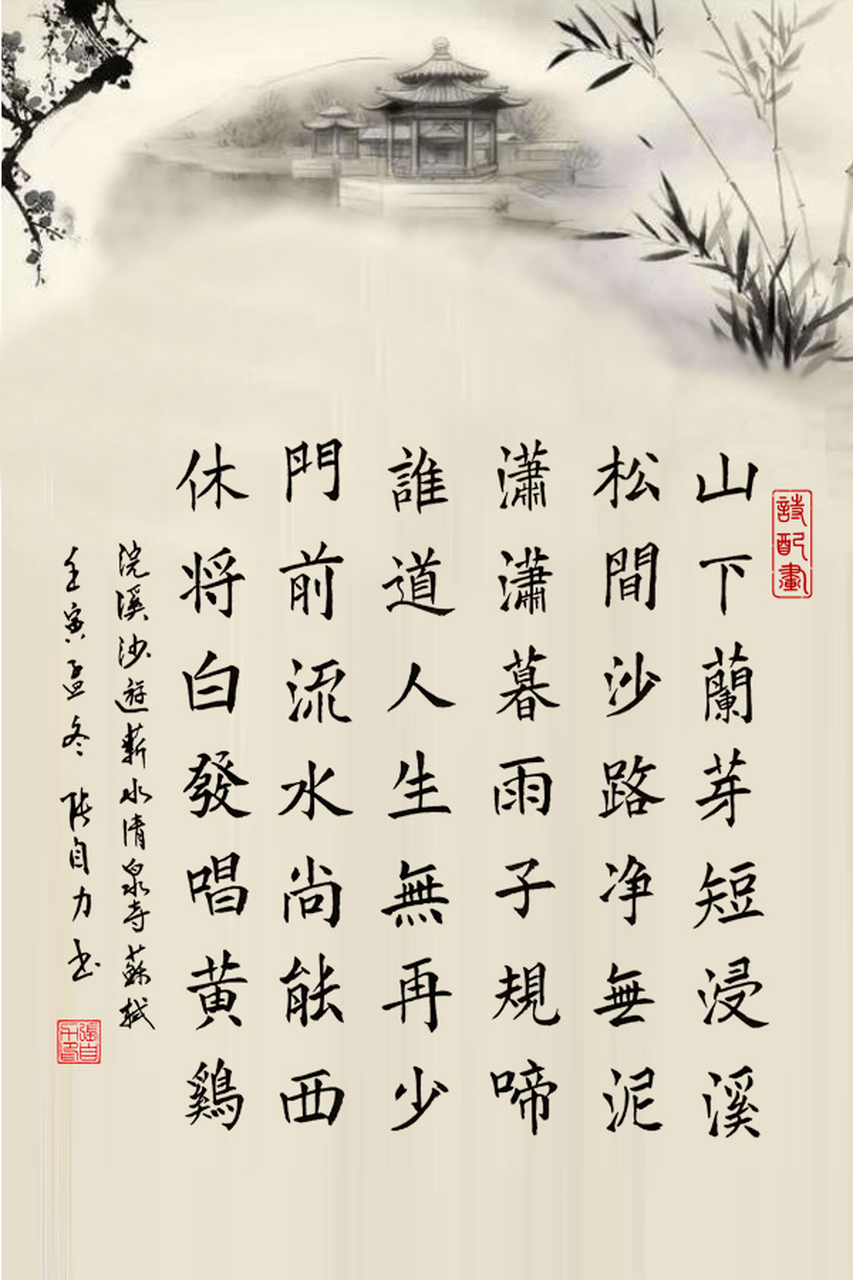 詩配畫
山下蘭芽短浸溪
松間沙路净無泥
瀟瀟暮雨子規啼
誰道人生無再少
門前流水尚能西
休将白發唱黄鷄
浣溪沙遊蘄水清泉寺蘇軾
壬寅孟冬張自力书